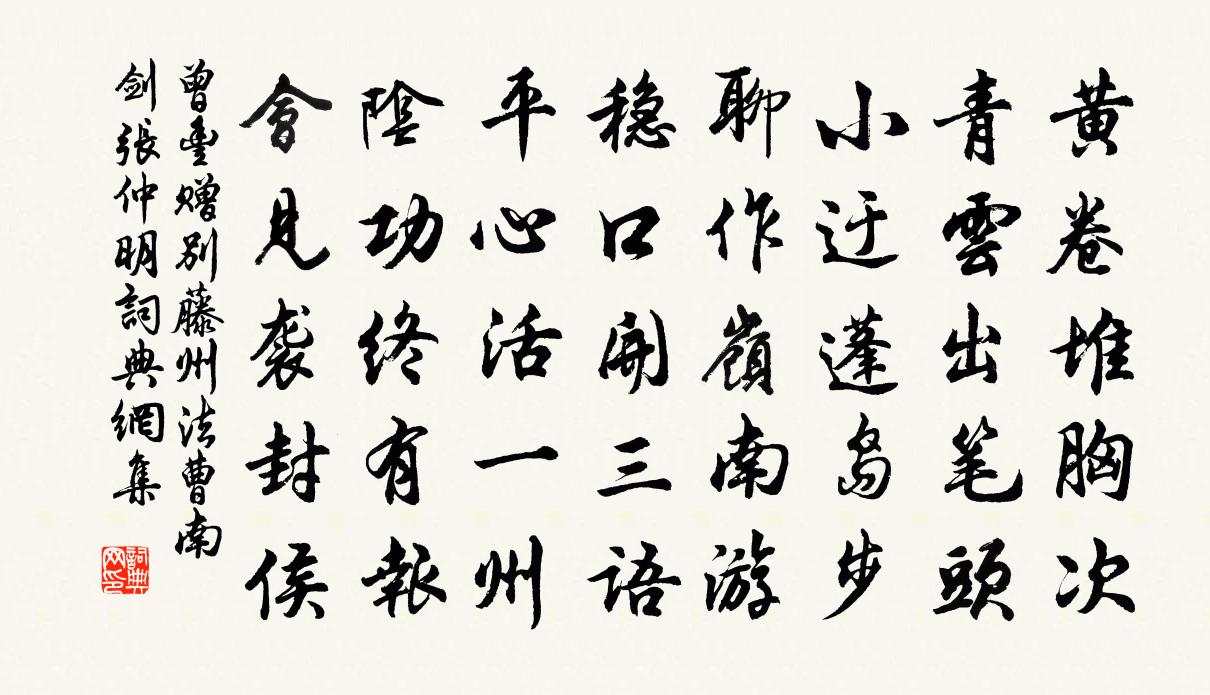 黄卷堆胸次
青雲出笔頭
小迂蓬岛步
聊作嶺南游
穏口開三語
平心活一州
陰功终有報
會見袭封侯
曾豊赠别藤州法曹南
剑張仲明詞典網集
詞典
网印